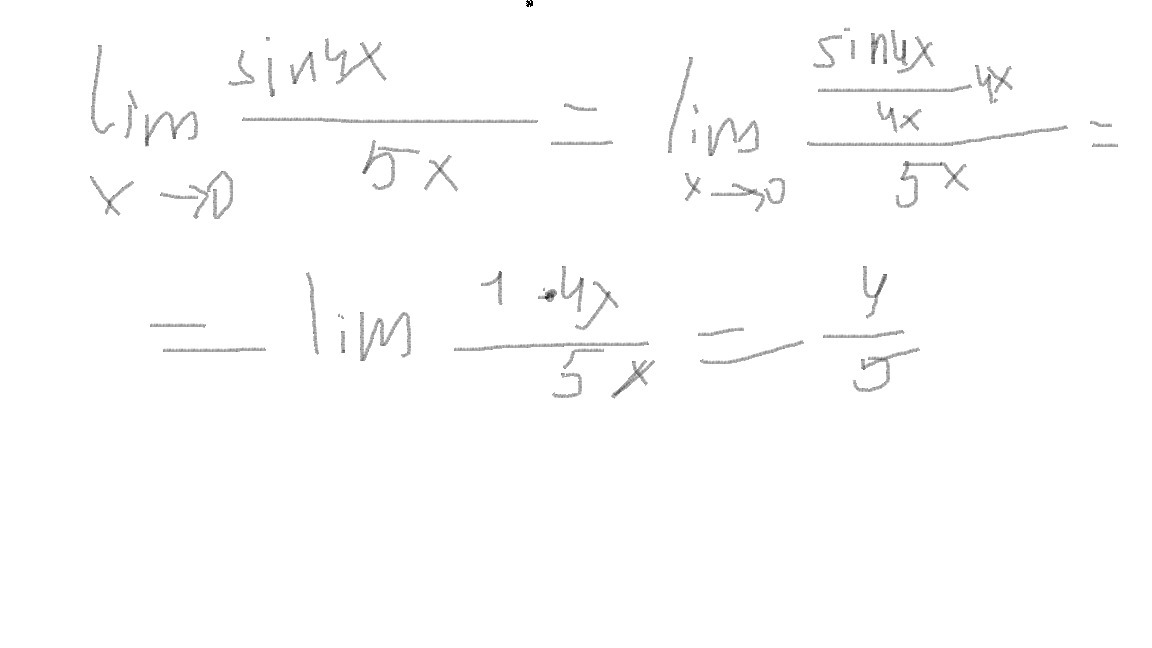 lim x→0 sin4x / 5x = lim x→0 (sin4x / 4x · 4x) / 5x =
= lim 1 · 4x / 5x = 4/5